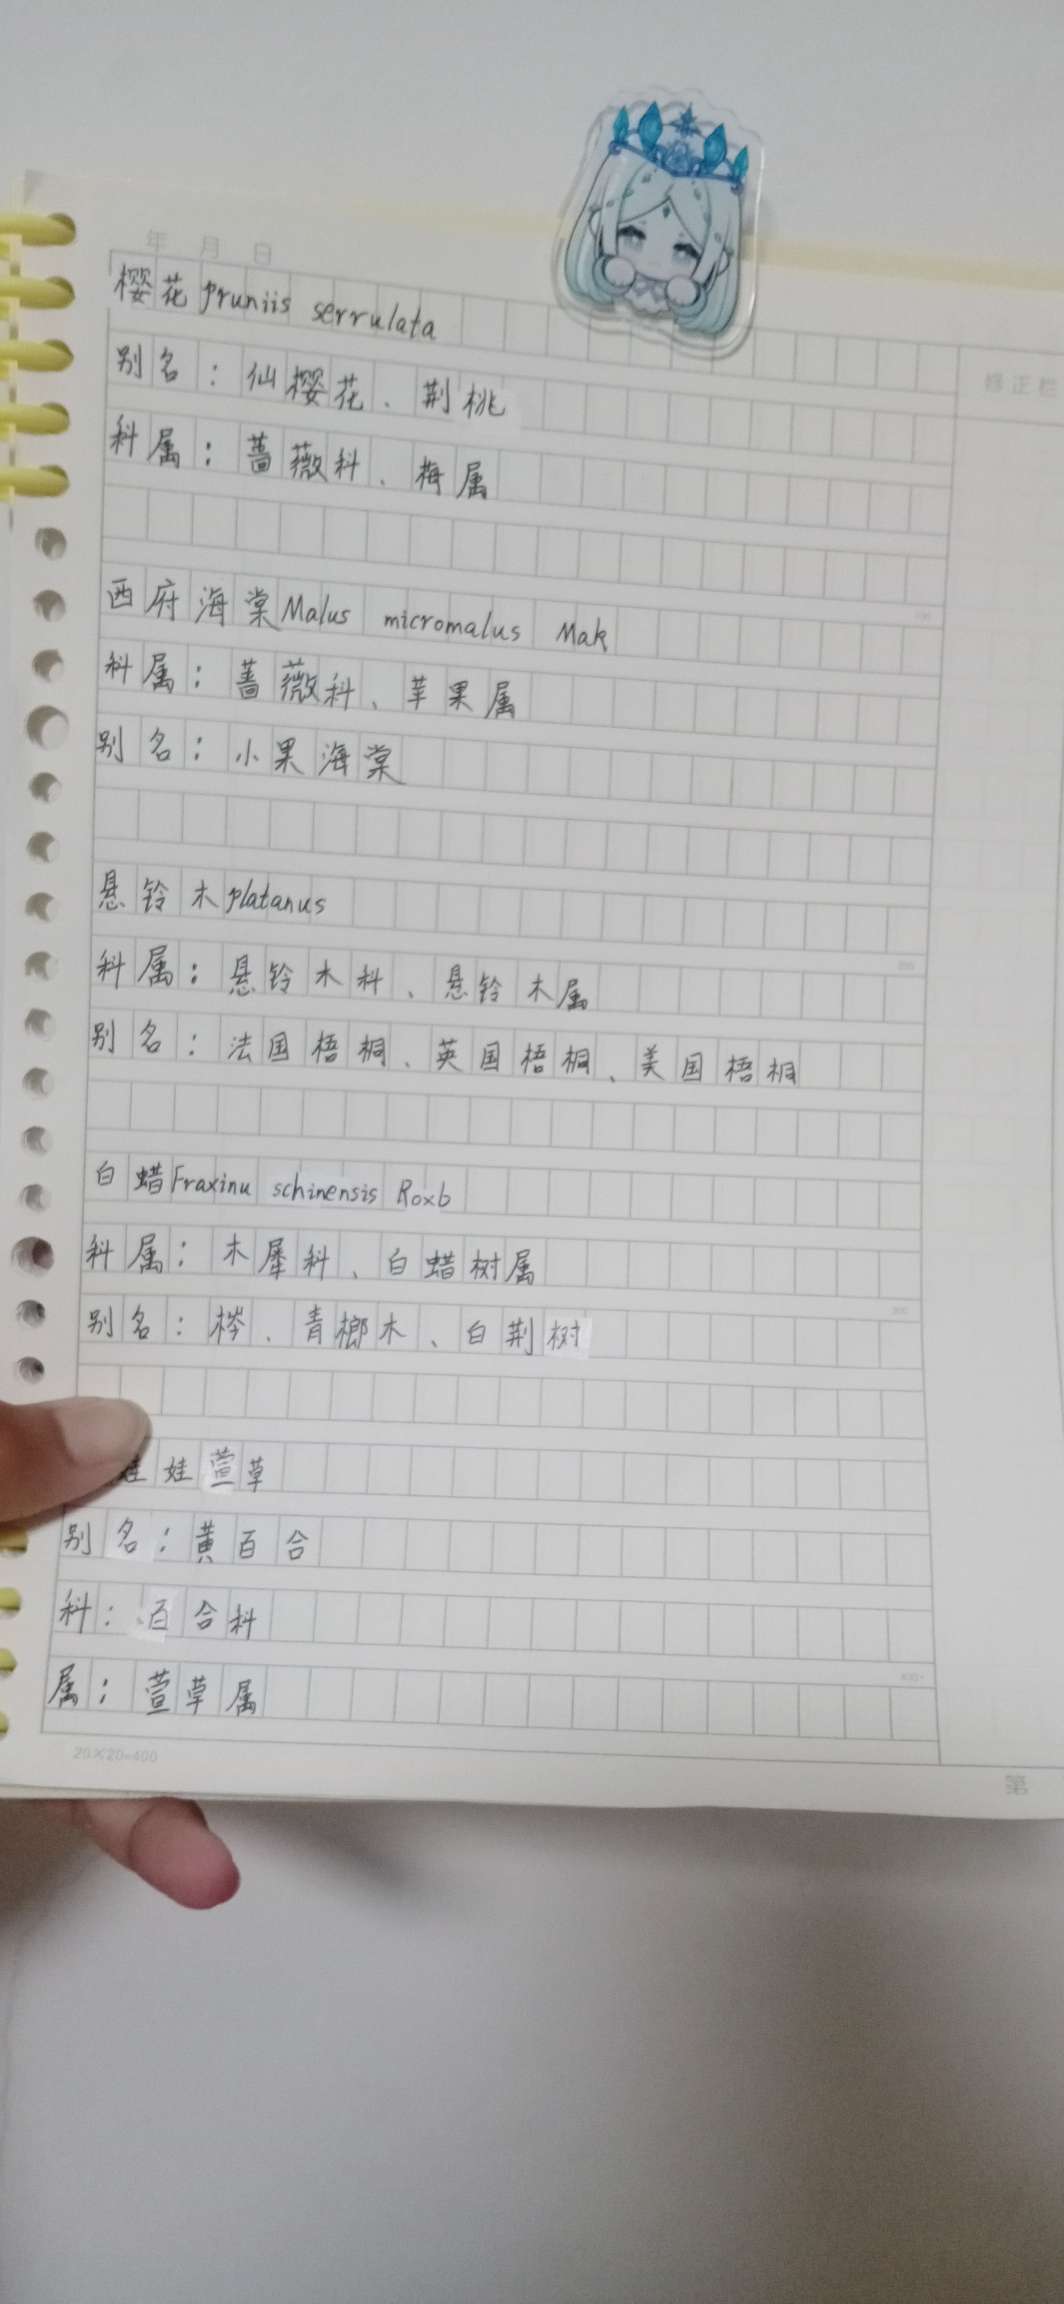 年 月 日
樱花 pruniis serrulata
别名：仙樱花、荆桃
修正栏
科属：蔷薇科、梅属
西府海棠 Malus micromalus Mak
科属：蔷薇科、苹果属
别名：小果海棠
悬铃木 platanus
科属：悬铃木科、悬铃木属
别名：法国梧桐、英国梧桐、美国梧桐
白蜡 Fraxinu schinensis Roxb
科属：木犀科、白蜡树属
别名：梣、青榔木、白荆树
娃娃萱草
别名：黄百合
科：百合科
属：萱草属
20×20=400
第